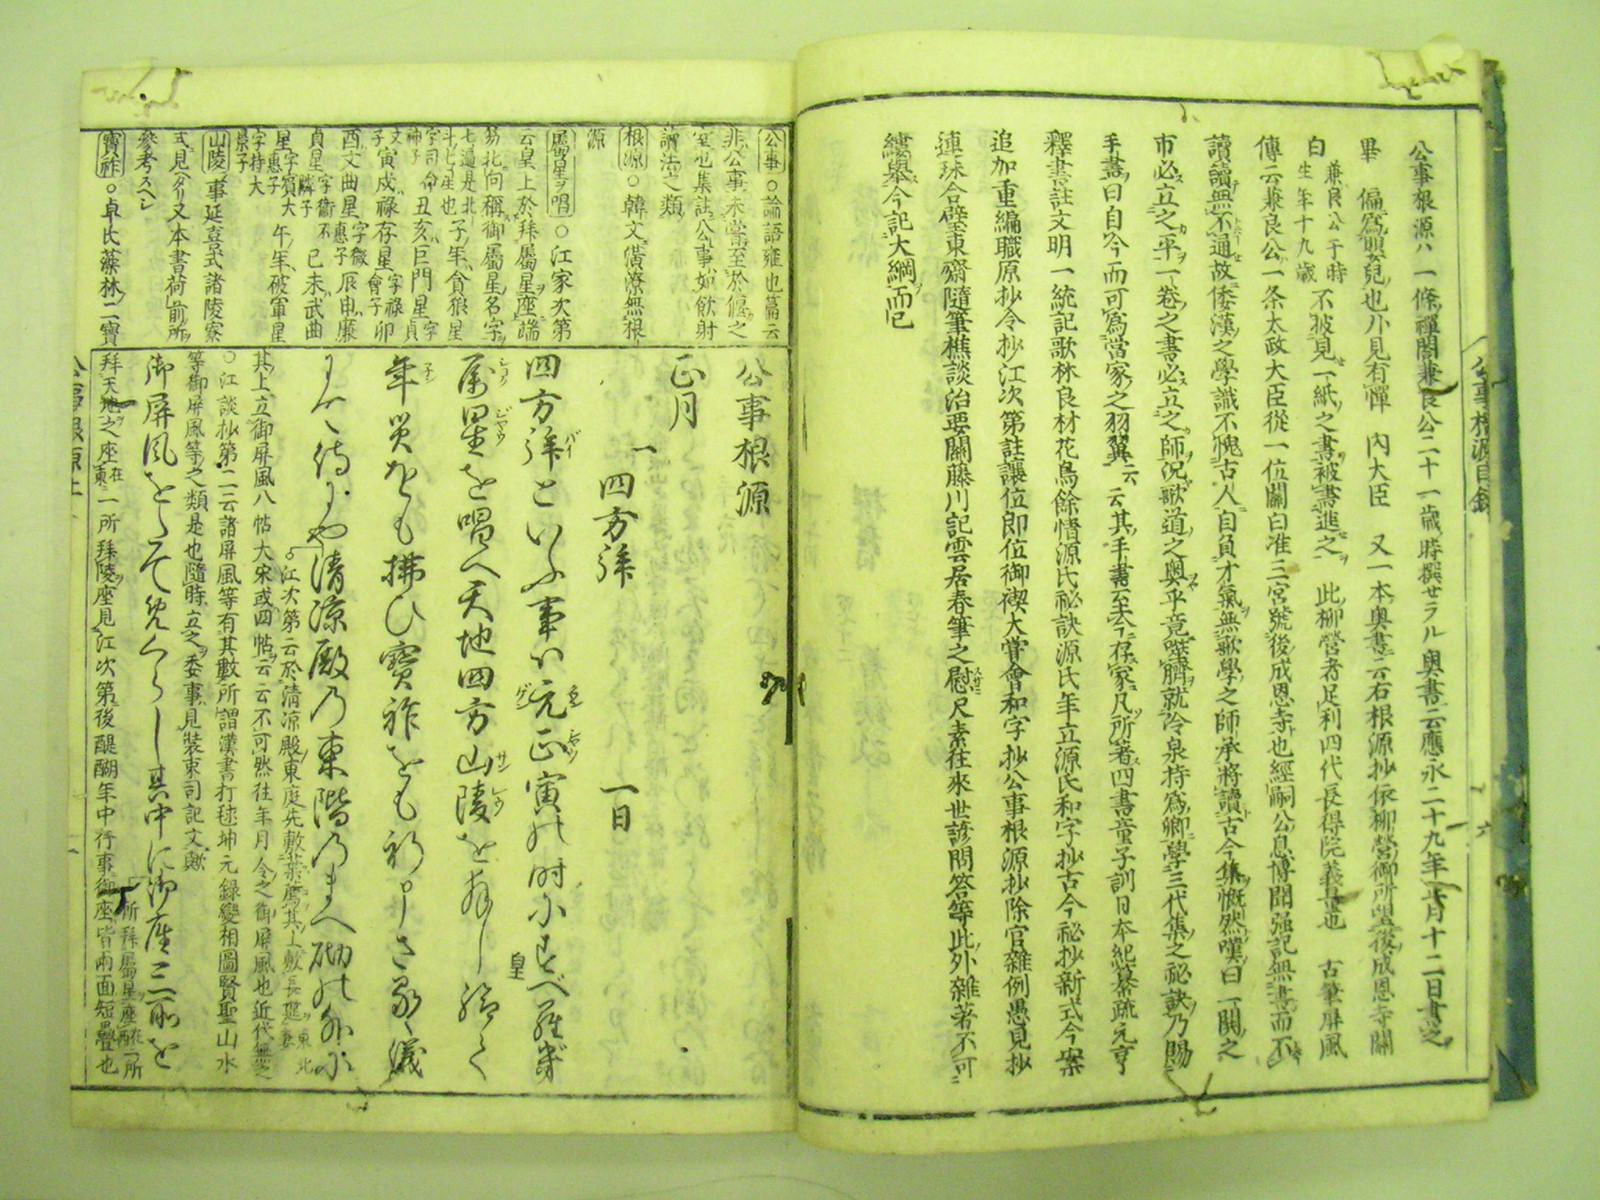 公事根源ハ一條禪閤兼良公二十一歳時撰セラル奥書云應永二十九年正月十二日書之
畢 偏爲嬰兒也外見有憚 内大臣 又一本奥書云右根源抄依柳營御所望後成恩寺關
白 兼良公于時生年十九歳 不披見一紙之書被書進之 此柳營者足利四代長得院義量也 古筆屏風
傳云兼良公一条太政大臣從一位關白准三宮號後成恩寺也經嗣公息博聞强記無書而不
讀讀無不通故倭漢之學識不愧古人自負才氣無歌學之師承將讀古今集慨然嘆曰一閧之
市必立之平一卷之書必立之師況歌道之奥乎竟噬臍就冷泉持爲卿學三代集之祕訣乃賜
手書曰自今而可爲當家之羽翼云云其手書至今存家凡所著四書童子訓日本紀纂疏元亨
釋書註文明一統記歌林良材花鳥餘情源氏祕訣源氏年立源氏和字抄古今祕抄新式今案
追加重編職原抄令抄江次第註讓位即位御禊大嘗會和字抄公事根源抄除官雜例愚見抄
連珠合璧東齋隨筆樵談治要關藤川記雲居春筆之慰尺素往來世諺問答等此外雜著不可
縷擧今記大綱而已
公事根源目録
六
公事○論語雍也篇云
非公事未嘗至於偃之
室也集註公事如飲射
讀法之類
根源○韓文潢潦無根
源
屬星ヲ唱○江家次第
云皇上於拜屬星座端
笏北向稱御屬星名字
七遍是北斗七星也 子年貪狼星
字司命神子 丑亥巨門星字貞
文子 寅戌祿存星字祿會子 卯
酉文曲星字微惠子 辰申廉
貞星字衞不隣子 巳未武曲
星字賓大惠子 午年破軍星
字持大景子
山陵事延喜式諸陵寮
式見タリ又本書荷前所
參考スヘシ
寶祚○卓氏藻林二寶
公事根源
正月
一 四方拜 一日
四方拜といふ事ハ元正寅の時にすべら皇ぎ
屬星を唱へ天地四方山陵を拜し給て
年災をも拂ひ寶祚をも祈申さるゝ儀
にて侍にや清凉殿の東階のまへ砌の外に
○江次第云於清凉殿東庭先敷葉薦其上敷長莚東北妻
其上立御屏風八帖大宋或四帖云云不可然往年月令之御屏風也近代無之
○江談抄第二云諸屏風等有其數所謂漢書打毬坤元録變相圖賢聖山水
等御屏風等之類是也隨時立之委事見裝束司記文歟
御屏風をたてめくらし其中に御座三所を
拜天地之座在東一所拜陵座見江次第後醍醐年中行事御座皆兩面短疊也
一所拜屬星座在西一所